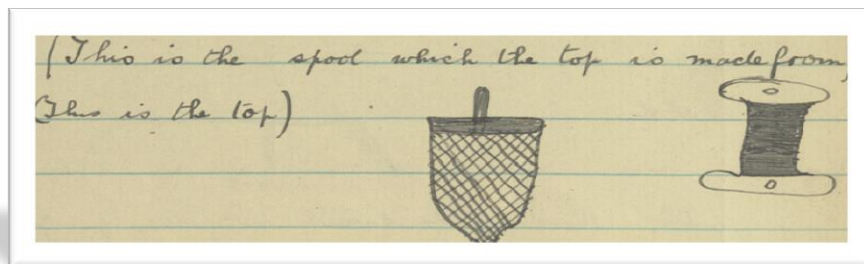 (This is the spool which the top is made from)
(This is the top)